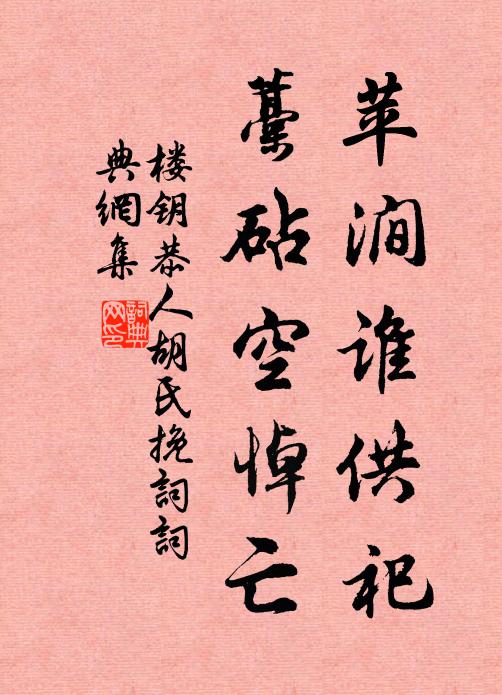 苹涧谁供祀
藁砧空悼亡
楼钥恭人胡氏挽词词
典網集
詞典
网印